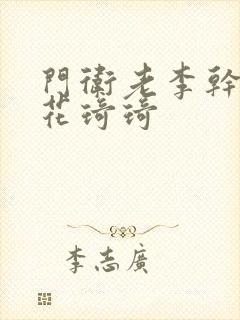 門衛老李幹
花琦琦
李志廣